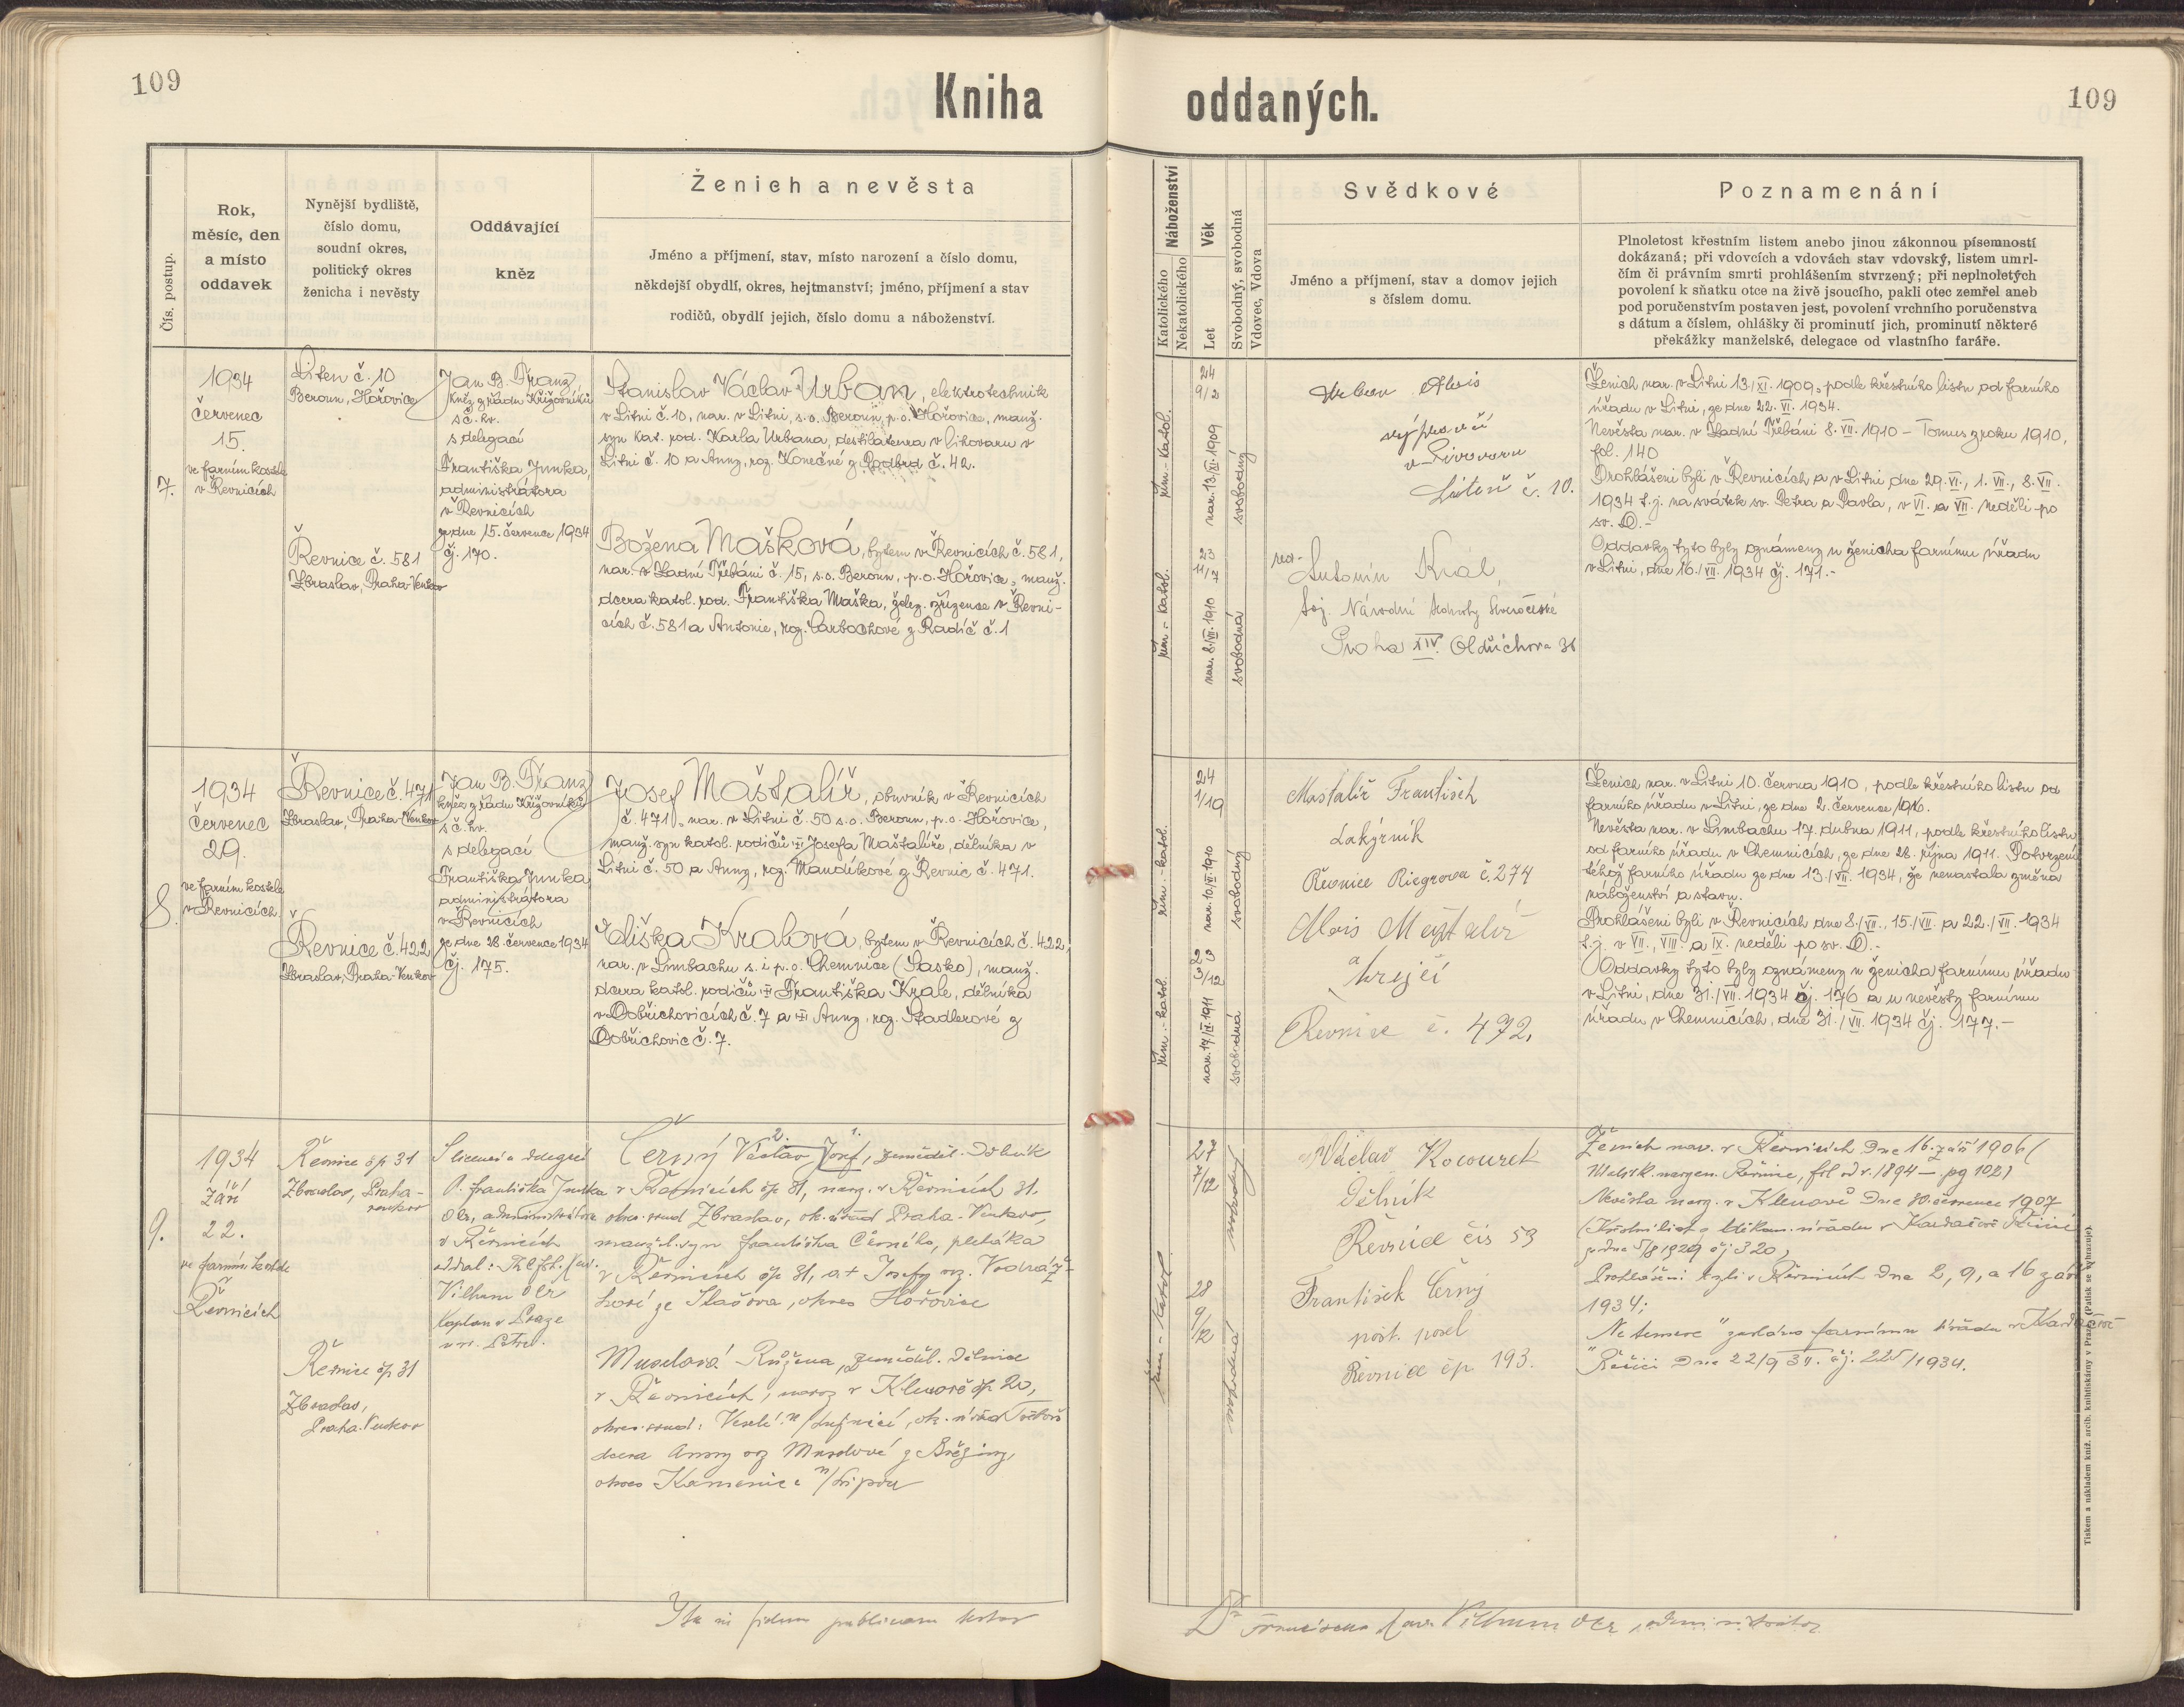 109
Kniha
oddaných.
109
Čís. postup.
Rok,
měsíc, den
a místo
oddavek
Nynější bydliště,
číslo domu,
soudní okres,
politický okres
ženicha i nevěsty
Oddávající
kněz
Ženich a nevěsta
Jméno a příjmení, stav, místo narození a číslo domu,
někdejší obydlí, okres, hejtmanství; jméno, příjmení a stav
rodičů, obydlí jejich, číslo domu a náboženství.
Náboženství
Katolického
Nekatolického
Věk
Let
Svobodný, svobodná
Vdovec, Vdova
Svědkové
Jméno a příjmení, stav a domov jejich
s číslem domu.
Poznamenání
Plnoletost křestním listem anebo jinou zákonnou písemností
dokázaná; při vdovcích a vdovách stav vdovský, listem umrl-
čím či právním smrti prohlášením stvrzený; při neplnoletých
povolení k sňatku otce na živě jsoucího, pakli otec zemřel aneb
pod poručenstvím postaven jest, povolení vrchního poručenstva
s dátum a číslem, ohlášky či prominutí jich, prominutí některé
překážky manželské, delegace od vlastního faráře.
7.
1934
červenec
15.
ve farním kostele
v Řevnicích
Liten č. 10
Beroun, Hořovice
Řevnice č. 581
Zbraslav, Praha-Venkov
Jan B. Franz
kněz z řádu Křižovníků
s č. hv.
s delegací
Františka Junka,
administrátora
v Řevnicích
ze dne 15. července 1934
čj. 170.
Stanislav Václav Urban, elektrotechnik
v Litni č. 10, nar. v Litni, s.o. Beroun, p.o. Hořovice, manž.
syn kat. rod. Karla Urbana, destilateura v lihovaru v
Litni č. 10 a Anny, roz. Konečné z Podbrd č. 42.
Božena Mašková, bytem v Řevnicích č. 581,
nar. v Zadní Třebáni č. 15, s.o. Beroun, p.o. Hořovice, manž.
dcera katol. rod. Františka Maška, želez. zřízence v Řevni-
cích č. 581 a Antonie, roz. Carbochové z Radíč č. 1
řím.-katol.
24
9/2
nar. 13/XI. 1909
svobodný
řím.-katol.
23
11/7
nar. 8/VII. 1910
svobodná
Urban Alois
výpravčí
v Livovaru
Liteň č. 10.
Antonín Král
Národní
Praha XIV. Oldřichova 36
Ženich nar. v Litni 13/XI. 1909, podle křestního listu od farního
úřadu v Litni, ze dne 22. VI. 1934.
Nevěsta nar. v Zadní Třebáni 8. VII. 1910 – Tomus z roku 1910,
fol. 140
Prohlášeni byli v Řevnicích a v Litni dne 29. VI., 1. VII., 8. VII.
1934 t.j. na svátek sv. Petra a Pavla, v VI. a VII. neděli po
sv. D.–
Oddavky tyto byly oznámeny u ženicha farnímu úřadu
v Litni, dne 16./VII. 1934 čj. 171.–
8.
1934
červenec
29.
ve farním kostele
v Řevnicích
Řevnice č. 471
Zbraslav, Praha-Venkov
Řevnice č. 422
Zbraslav, Praha-Venkov
Jan B. Franz
kněz z řádu Křižovníků
s č. hv.
s delegací
Františka Junka
administrátora
v Řevnicích
ze dne 28. července 1934
čj. 175.
Josef Maštalíř, obuvník v Řevnicích
č. 471, nar. v Litni č. 50 s.o. Beroun, p.o. Hořovice,
manž. syn katol. rodičů Josefa Maštalíře, dělníka v
Litni č. 50 a Anny, roz. Mandíkové z Řevnic č. 471.
Eliška Kralová, bytem v Řevnicích č. 422,
nar. v Limbachu s. i p.o. Chemnice (Sasko), manž.
dcera katol. rodičů Františka Krale, dělníka
v Dobřichovicích č. 7 a Anny, roz. Stadlerové z
Dobřichovic č. 7.
řím.-katol.
24
1/19
nar. 10/VI. 1910
svobodný
řím.-katol.
23
3/12
nar. 17/IV. 1911
svobodná
Maštalíř František
Lakýrník
Řevnice Riegrova č 274
Alois Maštalíř
krejčí
Řevnice č. 492.
Ženich nar. v Litni 10. června 1910, podle křestního listu od
farního úřadu v Litni, ze dne 2. července 1916.
Nevěsta nar. v Limbachu 17. dubna 1911, podle křestního listu
od farního úřadu v Chemnicích, ze dne 28. října 1911. Potvrzení
téhož farního úřadu ze dne 13./VII. 1934, že nenastala změna
náboženství a stavu.
Prohlášeni byli v Řevnicích dne 8./VII., 15./VII. a 22./VII. 1934
t.j. v VII., VIII. a IX. neděli po sv. D.–
Oddavky tyto byly oznámeny u ženicha farnímu úřadu
v Litni, dne 31./VII. 1934 čj. 176 a u nevěsty farnímu
úřadu v Chemnicích, dne 31./VII. 1934 čj. 177.–
9.
1934
Září
22.
ve farním kostele
v
Řevnicích
Řevnice čp 31
Zbraslav, Praha-
venkov
Řevnice čp 31
Zbraslav,
Praha-Venkov
S licencí a delegací
P. Františka Junka
administrátora
v Řevnicích
oddal:
Vilhum
kaplan v Praze
u sv. Petra.
2. 1.
Černý Václav Josef, zeměděl. dělník
v Řevnicích čp 31, naroz. v Řevnicích 31.
okres. soud Zbraslav, ok. úřad Praha-Venkov,
manžel. syn Františka Černého,
v Řevnicích čp 31, a + Josefy roz.
okres Hořovice
Muselová Růžena, zeměděl. dělnice
v Řevnicích, naroz v Klenově čp 20,
okres. soud: Veselí n/Lužnicí, ok. úřad
dcera Anny roz Muselové z Březiny
okres Kamenice n/Lipou
řím-katol.
27
7/12
svobodný
28
9/12
svobodná
Václav Kocourek
Dělník
Řevnice čis 53
František Černý
pošt. posel
Řevnice čp 193.
Ženich nar. v Řevnicích dne 16. září 1906 (
Řevnice, fol od r. 1894 –. pg 102)
Nevěsta naroz. v Klenově dne 30. července 1907
(Křestní list úřadu v Kardašově Řečici
ze dne 5/8 1929 čj 320)
Prohlášeni byli v Řevnicích dne 2, 9, a 16 září
1934;
"Ne temere" zasláno farnímu úřadu v Kardašově
Řečici dne 22/9 34. čj. 225/1934.
Ita in fidem publicam testor
Vilhum administrátor
Tiskem a nákladem kníž. arcib. knihtiskárny v Praze (Patisk se vyhrazuje).